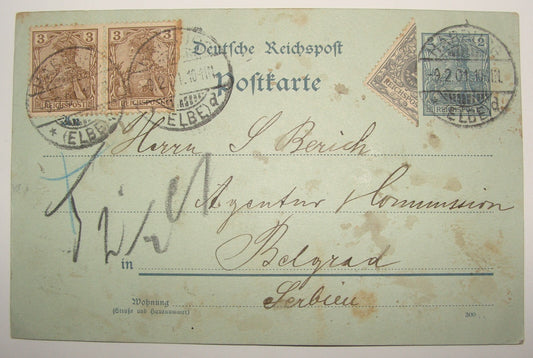 3 3 3
REICHSPOST REICHSPOST
(ELBE)
(ELBE) d
Deutsche Reichspost
Postkarte
2
9.2.01.10-11V.
(ELBE) d
Herrn S Berich
Agentur & Commission
in Belgrad
Serbien
Wohnung
(Straße und Hausnummer)
300